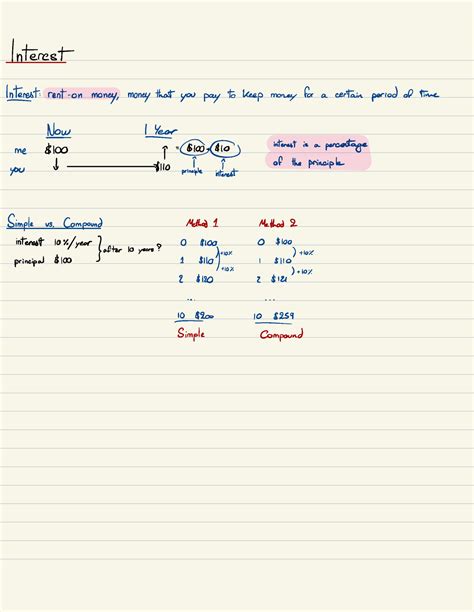 Interest
Interest: rent-on money, money that you pay to keep money for a certain period of time
Now 1 Year
me $100 = $100 + $10 interest is a percentage
you $110 principle interest of the principle
Simple vs. Compound Method 1 Method 2
interest 10%/year 0 $100 0 $100
principal $100 after 10 years? 1 $110 +10% 1 $110 +10%
2 $120 +10% 2 $121 +10%
... ...
10 $200 10 $259
Simple Compound